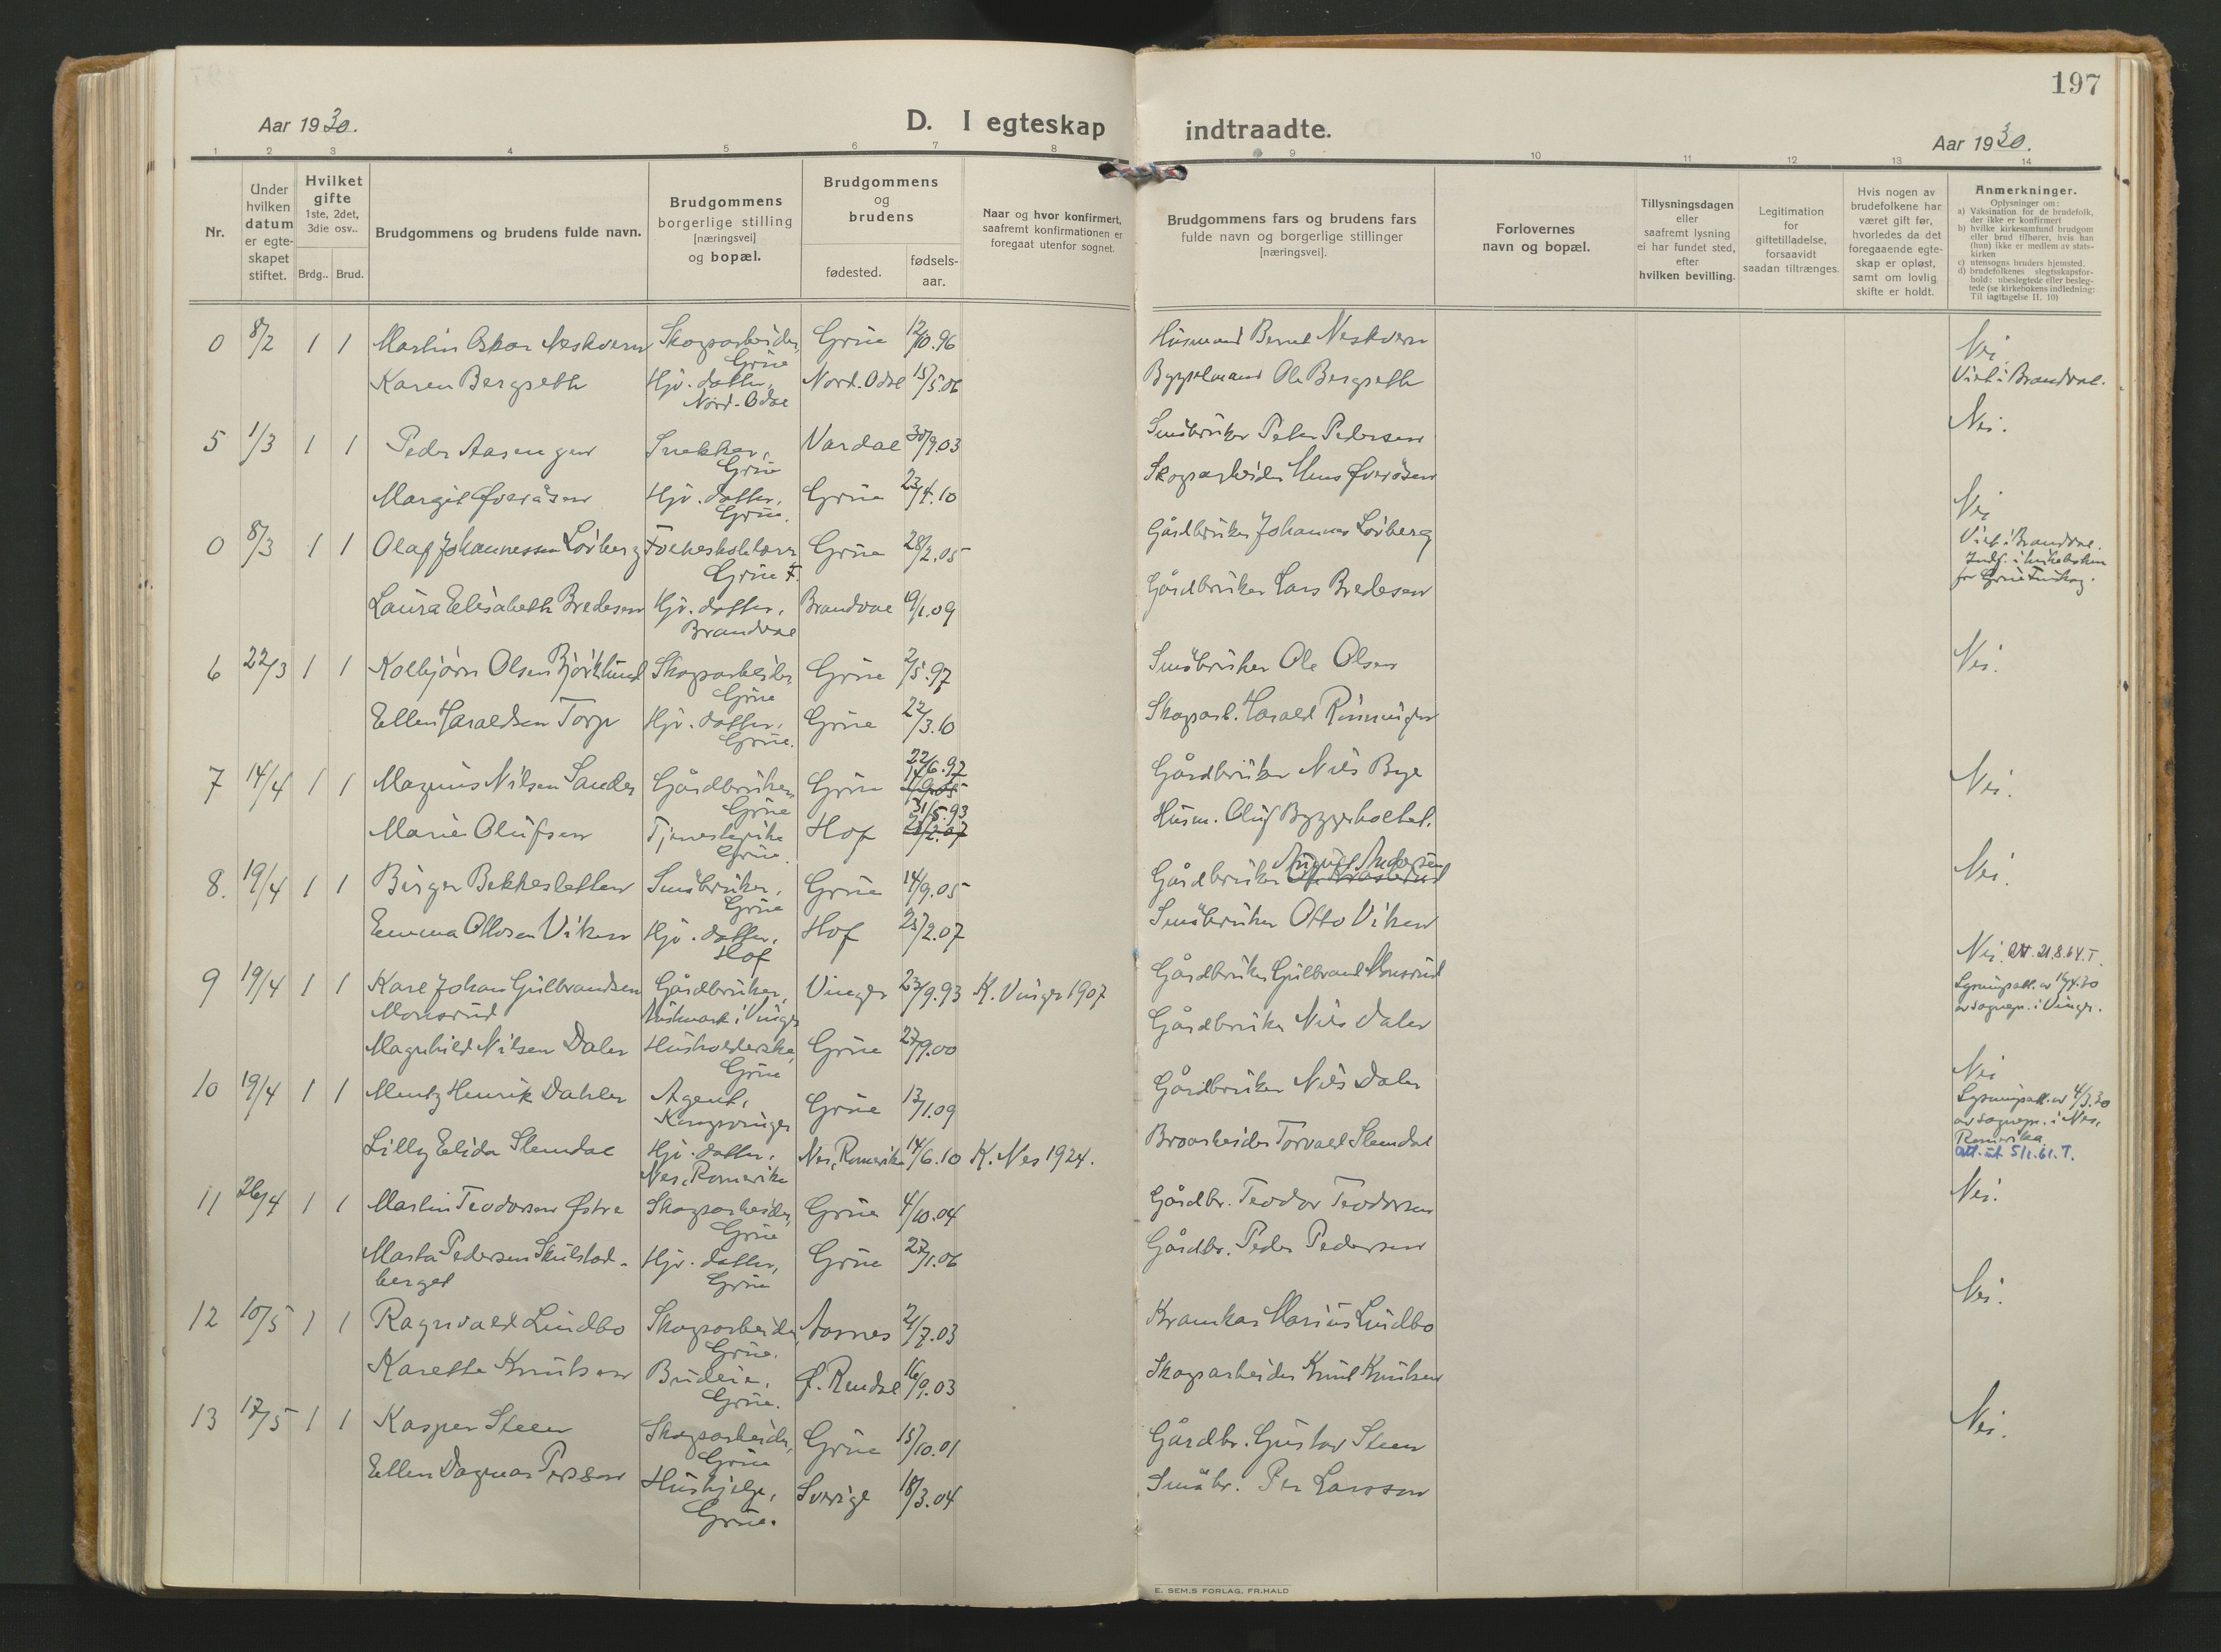 197
Aar 1930.
D. I egteskap indtraadte.
Aar 1930.
1 2 3 4 5 6 7 8 9 10 11 12 13 14
Nr.
Under hvilken datum er egte-skapet stiftet.
Hvilket gifte 1ste, 2det, 3die osv..
Brdg.. Brud.
Brudgommens og brudens fulde navn.
Brudgommens borgerlige stilling [næringsvei] og bopæl.
Brudgommens og brudens
fødested.
fødsels-aar.
Naar og hvor konfirmert, saafremt konfirmationen er foregaat utenfor sognet.
Brudgommens fars og brudens fars fulde navn og borgerlige stillinger [næringsvei].
Forlovernes navn og bopæl.
Tillysningsdagen eller saafremt lysning ei har fundet sted, efter hvilken bevilling.
Legitimation for giftetilladelse, forsaavidt saadan tiltrænges.
Hvis nogen av brudefolkene har været gift før, hvorledes da det foregaaende egte-skap er opløst, samt om lovlig skifte er holdt.
Anmerkninger.
Oplysninger om:
a) Vaksination for de brudefolk, der ikke er konfirmert
b) hvilke kirkesamfund brudgom eller brud tilhører, hvis han (hun) ikke er medlem av stats-kirken
c) utensogns bruders hjemsted.
d) brudefolkenes slegtsskapsfor-hold: ubeslegtede eller besleg-tede (se kirkebokens indledning: Til iagttagelse II. 10)
0 8/2 1 1 Martin Oskar Neskvern Skogsarbeider, Grue Grue 12/10.96 Husmand Bernt Neskvern Nei
Karen Bergseth Hjv. datter, Nord-Odal Nord-Odal 15/5.06 Bygselmand Ole Bergseth Viet i Brandval.
5 1/3 1 1 Peder Aasengen Snekker, Grue Vardal 30/9.03 Småbruker Peter Pedersen Nei.
Margit Øveråsen Hjv. datter, Grue. Grue 23/4.10 Skogsarbeider Øveråsen
0 8/3 1 1 Olaf Johannessen Lövberg Grue F. Grue 28/2.05 Gårdbruker Johannes Lövberg Nei
Viet i Brandval.
Indf. i kirkeboken
for Grue Finskog.
Laura Elisabeth Bredesen Hjv. datter, Brandval Brandval 19/1.09 Gårdbruker Lars Bredesen
6 22/3 1 1 Kolbjörn Olsen Björklund Skogsarbeider, Grue Grue 2/5.97 Småbruker Ole Olsen Nei.
Ellen Haraldsen Torp Hjv. datter, Grue. Grue 22/3.10 Skogsarb. Harald Rönningen
7 14/4 1 1 Magnus Nilsen Sander Gårdbruker, Grue Grue 22/6.97 14/9.05 Gårdbruker Nils Bye Nei.
Marie Olufsen Tjenestepike Grue. Hof 31/5.93 23/2.07 Husm. Oluf Byggeholtet.
8. 19/4 1 1 Birger Bekkesletten Småbruker, Grue Grue 14/9.05 Gårdbruker August Andersen Nei.
Emma Ottosen Viken Hjv. datter, Hof Hof 23/2.07 Småbruker Otto Viken
9 19/4 1 1 Karl Johan Gulbrandsen Monsrud Gårdbruker, Austmark i Vinger Vinger 23/9.93 K. Vinger 1907 Gårdbruker Gulbrand Monsrud Nei. Att. 21.8.64. T.
Lysningsatt. av 16/4.30
av sognepr. i Vinger.
Magnhild Nilsen Daler Husholderske, Grue Grue 27/9.00 Gårdbruker Nils Daler
10 19/4 1 1 Mentz Henrik Dahler Agent, Kongsvinger Grue 13/1.09 Gårdbruker Nils Daler Nei
Lysningsatt. av 4/3.30
av sognepr. i Nes,
Romerike
Att. ut. 5/1.61. T.
Lilly Elida Slemdal Hjv. datter, Nes, Romerike Nes, Romerike 14/6.10 K. Nes 1924. Broarbeider Torvald Slemdal
11 26/4 1 1 Martin Teodorsen Østre Skogsarbeider, Grue Grue 4/10.04 Gårdbr. Teodor Teodorsen Nei.
Marta Pedersen Skulstad-berget Hjv. datter, Grue Grue 27/1.06 Gårdbr. Peder Pedersen
12 10/5 1 1 Ragnvald Lundbo Skogsarbeider, Grue. Aasnes 21/7.03 Kramkar Marius Lundbo Nei.
Karethe Knutsen Budeie, Grue. Ø. Rendal 16/9.03 Skogsarbeider Knut Knutsen
13 17/5 1 1 Kasper Steen Skogsarbeider, Grue Grue 15/10.01 Gårdbr. Gustav Steen Nei.
Ellen Dagmar Persson Hushjelp, Grue. Sverige 18/3.04 Småbr. Per Larsson
E. SEM.S FORLAG, FR.HALD